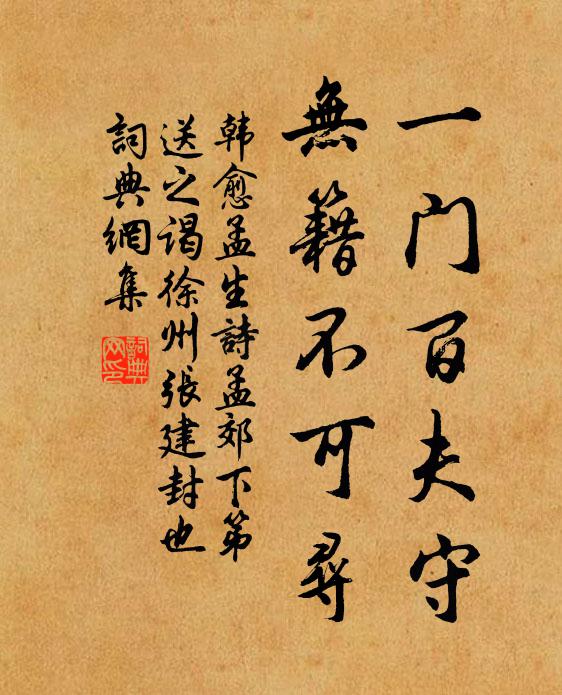 一门百夫守
無籍不可尋
韩愈孟生詩孟郊下第
送之谒徐州張建封也
詞典網集
詞典网印